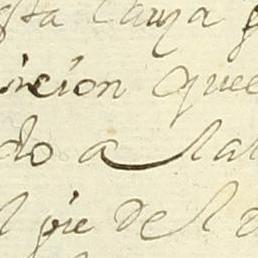 sta Cauza
icion que
do a la
l pie del